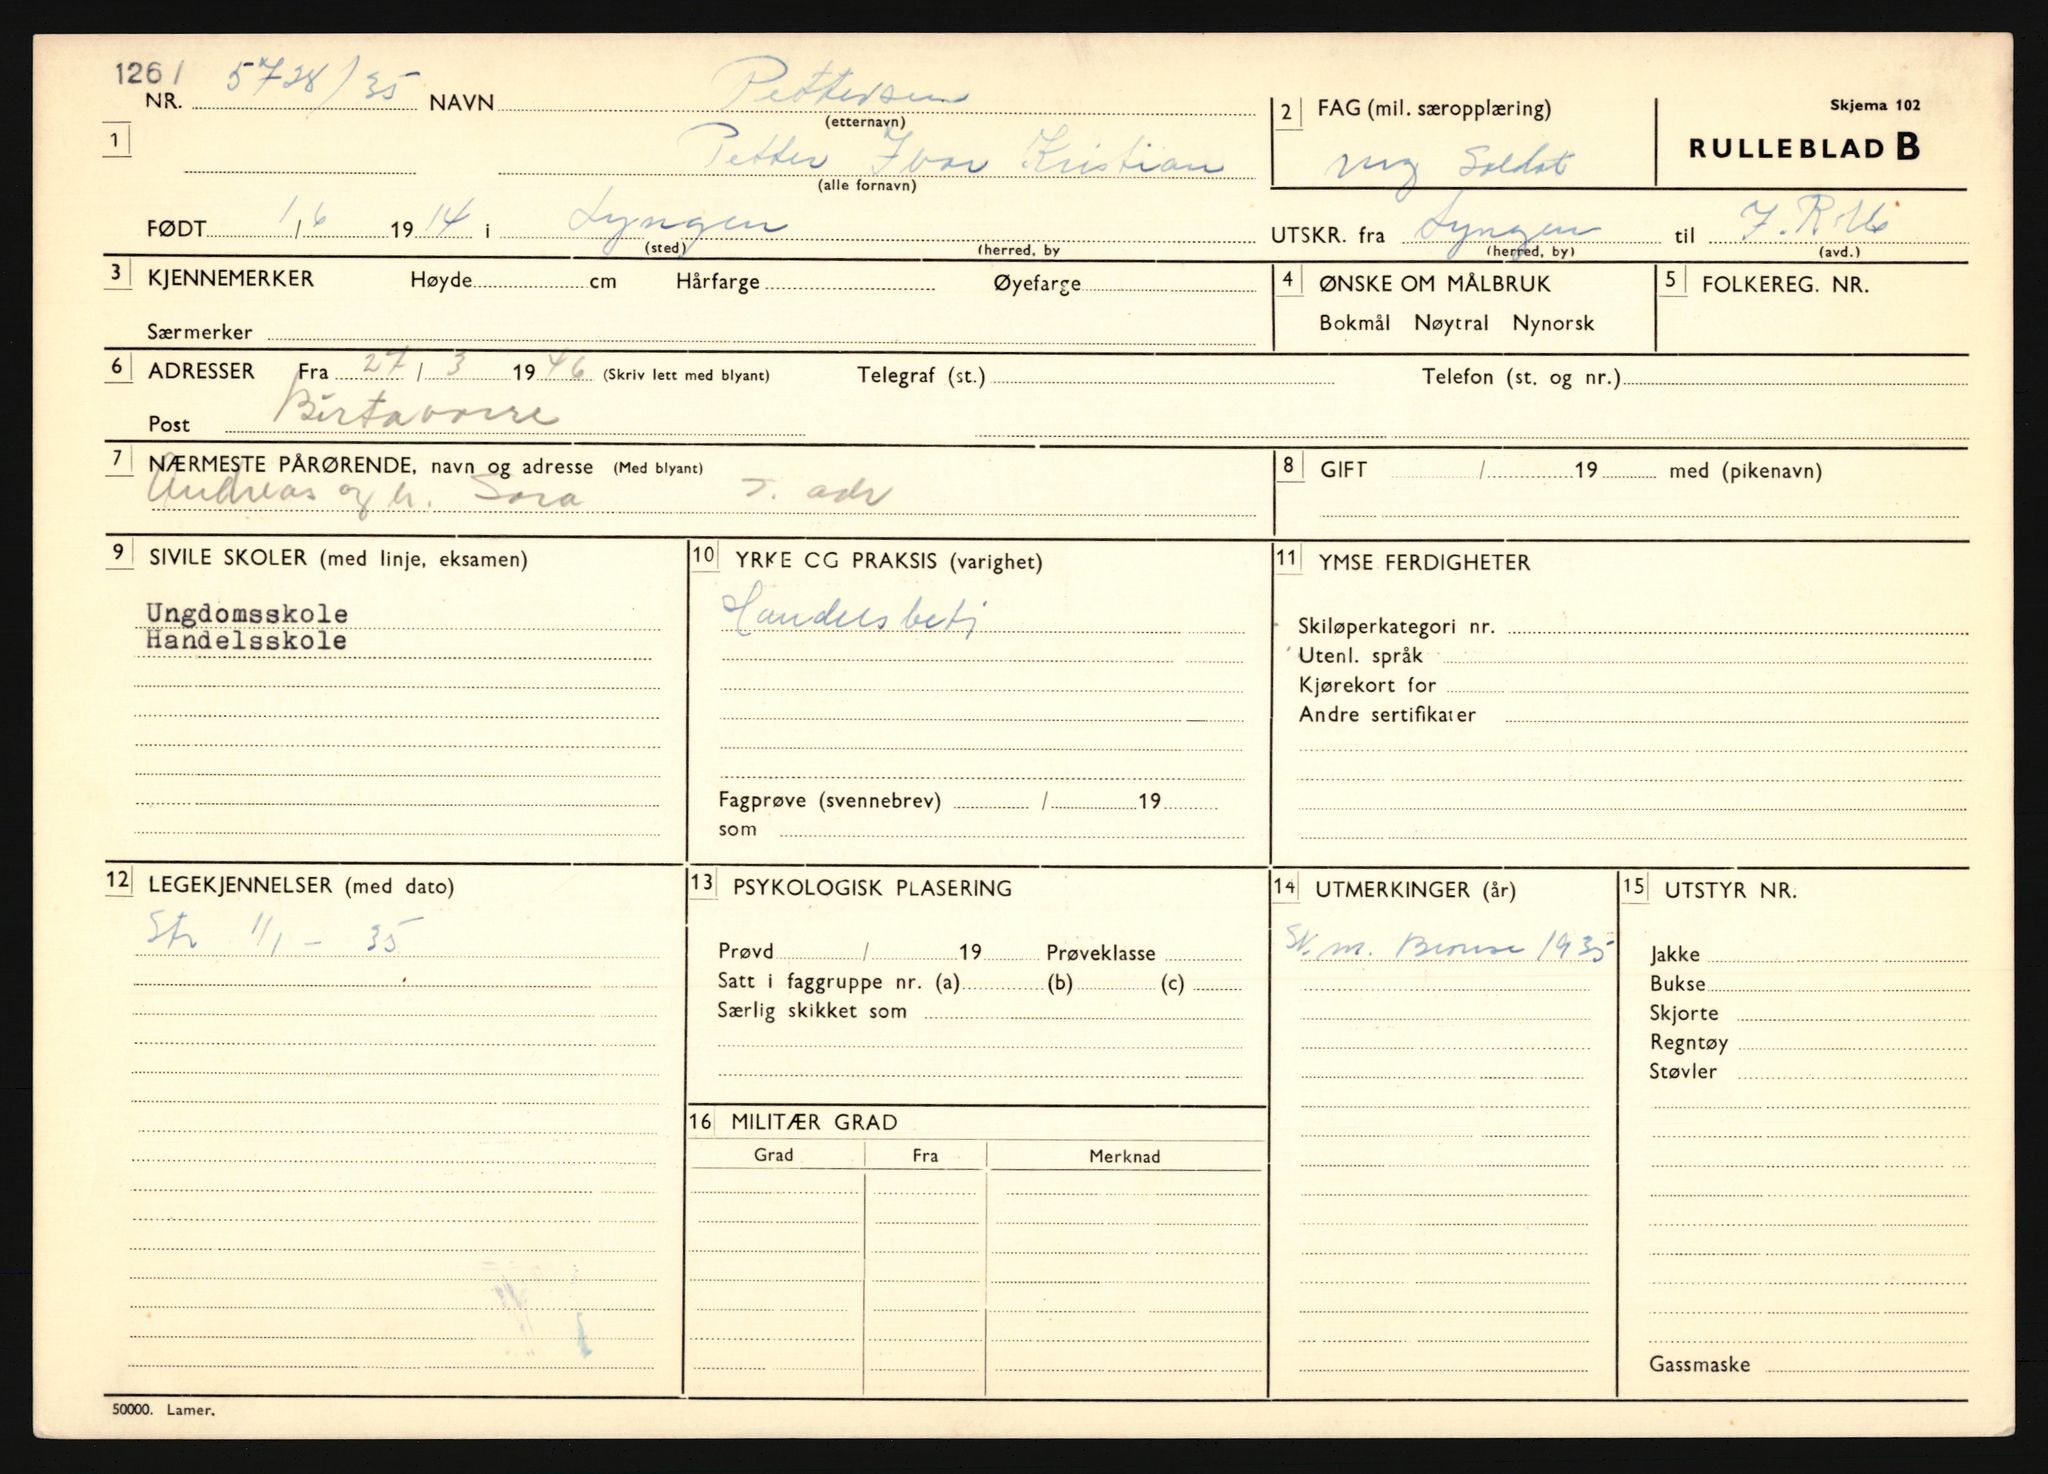 126 / 5728/35
NR. NAVN Pettersen
(etternavn)
1 Petter Ivar Kristian
(alle fornavn)
2 FAG (mil. særopplæring)
Soldat
Skjema 102
RULLEBLAD B
FØDT 1/6 1914 i Lyngen
(sted) (herred, by
UTSKR. fra Lyngen til
(herred, by) (avd.)
3 KJENNEMERKER Høyde cm Hårfarge Øyefarge
Særmerker
4 ØNSKE OM MÅLBRUK
Bokmål Nøytral Nynorsk
5 FOLKEREG. NR.
6 ADRESSER Fra 27/3 1946 (Skriv lett med blyant) Telegraf (st.) Telefon (st. og nr.)
Post Birtavarre
7 NÆRMESTE PÅRØRENDE, navn og adresse (Med blyant)
Andreas og h. Sara s. adr
8 GIFT / 19 med (pikenavn)
9 SIVILE SKOLER (med linje, eksamen)
Ungdomsskole
Handelsskole
10 YRKE OG PRAKSIS (varighet)
Handelsbetj
Fagprøve (svennebrev) / 19
som
11 YMSE FERDIGHETER
Skiløperkategori nr.
Utenl. språk
Kjørekort for
Andre sertifikater
12 LEGEKJENNELSER (med dato)
Str 1/1 - 35
13 PSYKOLOGISK PLASERING
Prøvd / 19 Prøveklasse
Satt i faggruppe nr. (a) (b) (c)
Særlig skikket som
14 UTMERKINGER (år)
Sk. m. Bronse 1935
15 UTSTYR NR.
Jakke
Bukse
Skjorte
Regntøy
Støvler
Gassmaske
16 MILITÆR GRAD
Grad Fra Merknad
50000. Lamer.